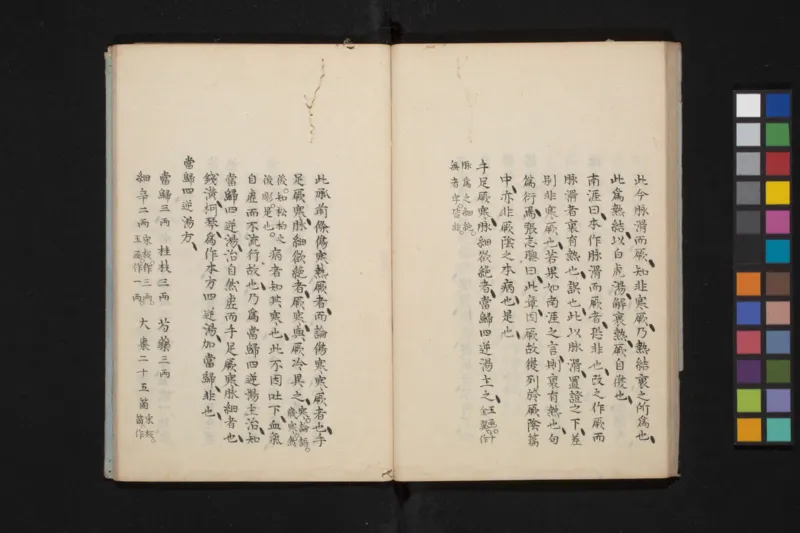 此今脉滑而厥知非寒厥乃熱結裏之所為也
此為熱結以白虎湯解裏熱厥自復也
南涯曰本作脉滑而厥者非也改之作厥而
脉滑者裏有熱也誤也此以脉滑置證之下差
別非寒厥也若果如南涯之言則裏有熱也句
為衍焉張志聰曰此章因厥故復列於厥陰篇
中亦非厥陰之本病也是也
手足厥寒脉細欲絕者當歸四逆湯主之
脉為之細絕
無者字
此承前條傷寒熱厥者而論傷寒寒厥者也手
足厥寒脉細欲絕者厥寒與厥冷異之寒論語歲寒然
後知松柏之後彫是也病者知其寒也此不因吐下血氣
自虛而不流行故也乃為當歸四逆湯主治知
當歸四逆湯治自然虛而手足厥寒脉細者也
錢潢柯琴為作本方四逆湯加當歸非也
當歸四逆湯方
當歸三兩 桂枝三兩 芍藥三兩
細辛二兩 宋板作三兩玉函作一兩 大棗二十五箇